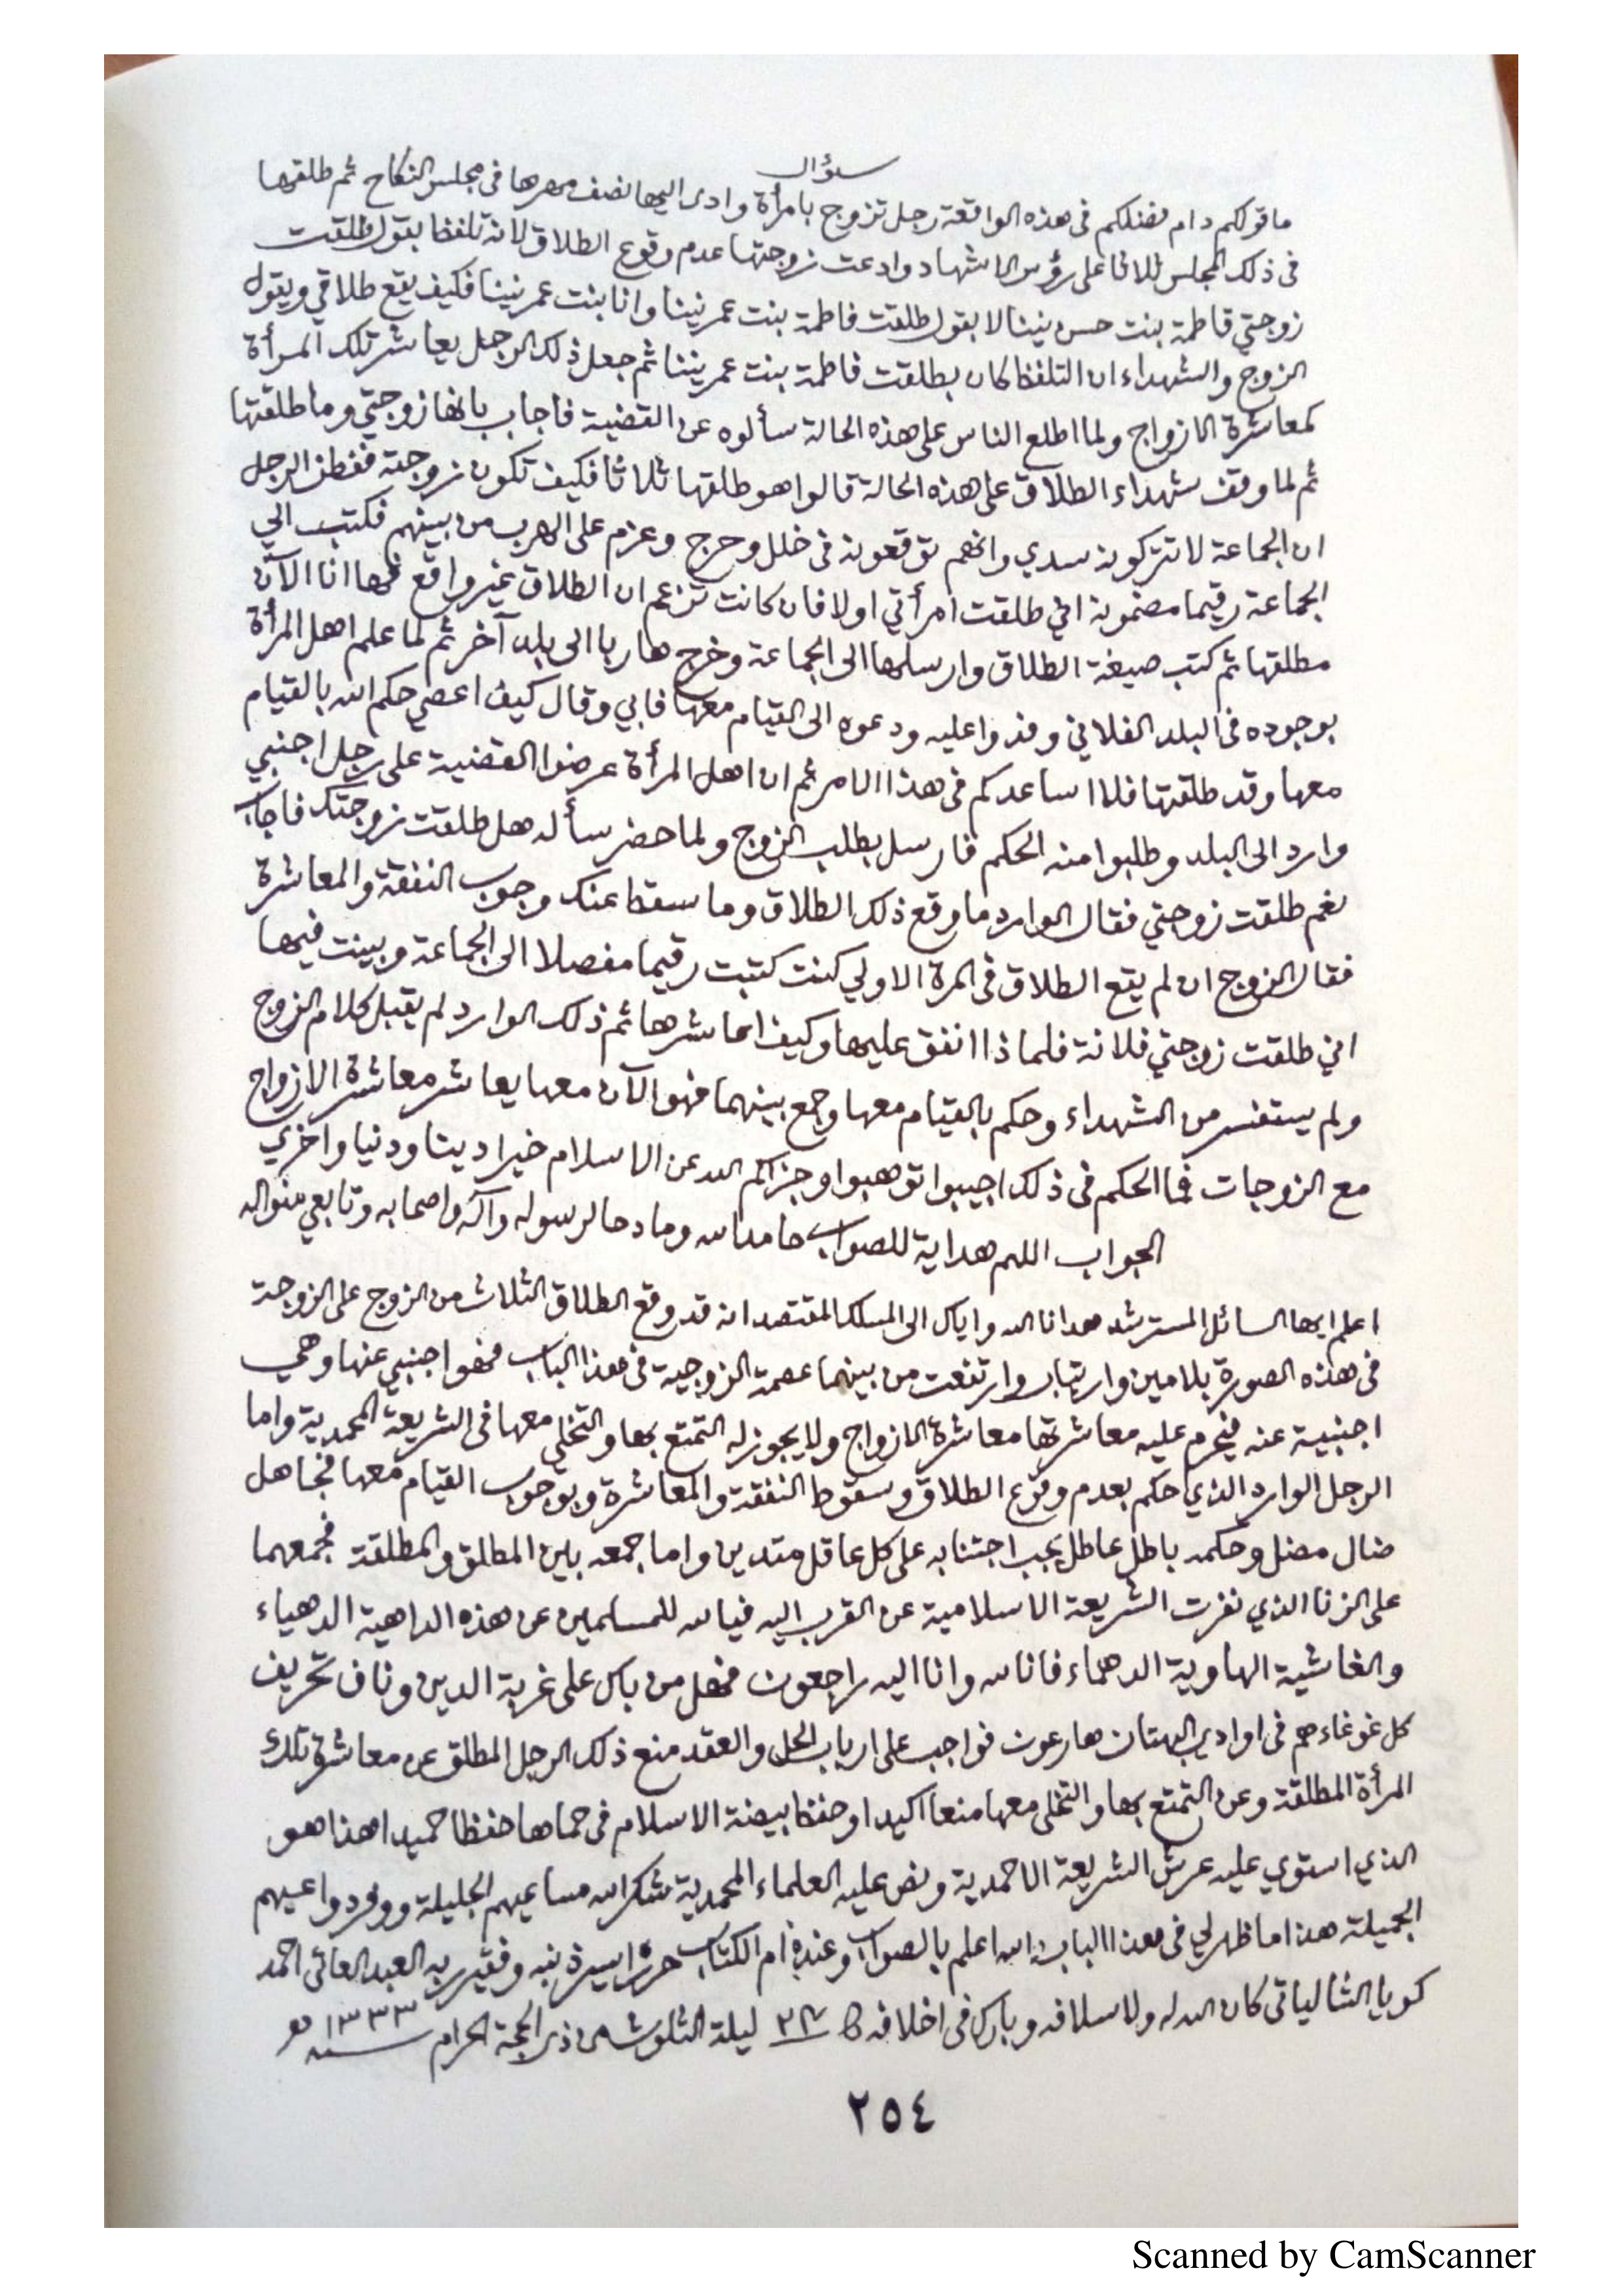 سؤال
ما قولكم دام فضلكم فى هذه الواقعة رجل تزوج بامرأة وادى اليها نصف مهرها فى مجلس النكاح ثم طلقها
فى ذلك المجلس ثلاثا على رؤس الاشهاد وادعت زوجتها عدم وقوع الطلاق لانه تلفظ بقول طلقت
زوجتي فاطمة بنت حسن نينا لا بقول طلقت فاطمة بنت عمر نينا وانا بنت عمر نينا فكيف يقع طلاقي ويقول
الزوج والشهداء ان التلفظ كان بطلقت فاطمة بنت عمر نينا ثم جعل ذلك الرجل يعاشر تلك المرأة
كمعاشرة الازواج ولما اطلع الناس على هذه الحالة سألوه عن القضية فاجاب بانها زوجتي وما طلقتها
ثم لما وقف شهداء الطلاق على هذه الحالة قالوا هو طلقها ثلاثا فكيف تكون زوجة ففطن الرجل
ان الجماعة لا تتركونه سدي وانهم توقعونه فى خلل وحرج وعزم على الهرب من بينهم فكتب الي
الجماعة رقيما مضمونه اني طلقت امرأتي اولا فان كانت تزعم ان الطلاق غير واقع فها انا الآن
مطلقها ثم كتب صيغة الطلاق وارسلها الى الجماعة وخرج هاربا الى بلد آخر ثم لما علم اهل المرأة
بوجوده فى البلد الفلاني وفدوا عليه ودعوه الى القيام معها فابي وقال كيف اعصي حكم الله بالقيام
معها وقد طلقتها فلا اساعدكم فى هذا الامر ثم ان اهل المرأة عرضوا القضية على رجل اجنبي
وارد الى البلد وطلبوا منه الحكم فارسل بطلب الزوج ولما حضر سأله هل طلقت زوجتك فاجاب
نعم طلقت زوجتي فقال الوارد ما وقع ذلك الطلاق وما سقط عنك وجوب النفقة والمعاشرة
فقال الزوج ان لم يقع الطلاق فى المرة الاولي كنت كتبت رقيما مفصلا الى الجماعة وبينت فيها
اني طلقت زوجتي فلانة فلماذا انفق عليها وكيف اعاشرها ثم ذلك الوارد لم يقبل كلام الزوج
ولم يستفسر من الشهداء وحكم بالقيام معها وجمع بينهما فهو الآن معها يعاشر معاشرة الازواج
مع الزوجات فما الحكم فى ذلك اجيبوا توهبوا وجزاكم الله عن الاسلام خيرا دينا ودنيا واخري
الجواب اللهم هداية للصواب حامدا لله ومادحا لرسوله وآله واصحابه وتابعي منواله
اعلم ايها السائل المسترشد هدانا الله واياك الى المسلك المقتصد انه قد وقع الطلاق الثلاث من الزوج على الزوجة
فى هذه الصورة بلا مين وارتياب وارتفعت من بينهما عصمة الزوجية فى هذا الباب فهو اجنبي عنها وهي
اجنبية عنه فيحرم عليه معاشرتها معاشرة الازواج ولا يجوز له التمتع بها والتخلي معها فى الشريعة المحمدية واما
الرجل الوارد الذي حكم بعدم وقوع الطلاق وسقوط النفقة والمعاشرة وبوجوب القيام معها فجاهل
ضال مضل وحكمه باطل عاطل يجب اجتنابه على كل عاقل متدين واما جمعه بين المطلق والمطلقة فجمعهما
على الزنا الذي نفرت الشريعة الاسلامية عن القرب اليه فيالله للمسلمين عن هذه الداهية الدهياء
والغاشية الهاوية الدهماء فانا لله وانا اليه راجعون فهل من باك على غربة الدين وناف تحريف
كل غوغاء هم فى اوادي البهتان هارعون فواجب على ارباب الحل والعقد منع ذلك الرجل المطلق عن معاشرة تلك
المرأة المطلقة وعن التمتع بها والتخلى معها منعا اكيدا وحفظ بيضة الاسلام فى حماها حفظا حميدا هذا هو
الذي استوي عليه عرش الشريعة الاحمدية ونص عليه العلماء المحمدية شكر الله مساعيهم الجليلة ووفر دواعيهم
الجميلة هذا ما ظهر لي فى هذا الباب والله اعلم بالصواب وعنده ام الكتاب حرره اسير ذنبه وفقير ربه العبد العاتى احمد
كويا الشالياتى كان الله له ولاسلافه وبارك فى اخلافه ليلة الثلوث من ذى الحجة الحرام سنة ١٣٣٣ هـ
٢٥٤
Scanned by CamScanner